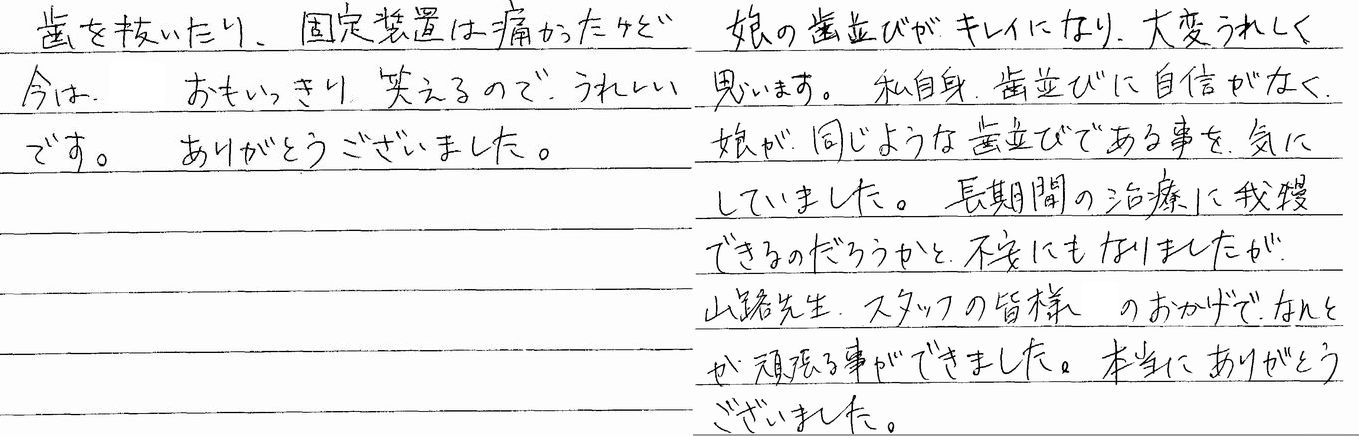 歯を抜いたり、固定装置は痛かったけど
今は、 おもいっきり 笑えるので、うれしい
です。 ありがとうございました。
娘の歯並びが キレイになり、大変うれしく
思います。 私自身、歯並びに自信がなく、
娘が、同じような歯並びである事を、気に
していました。 長期間の治療に我慢
できるのだろうかと、不安にもなりましたが、
山路先生、スタッフの皆様 のおかげで、なんと
か 頑張る事ができました。 本当に ありがとう
ございました。